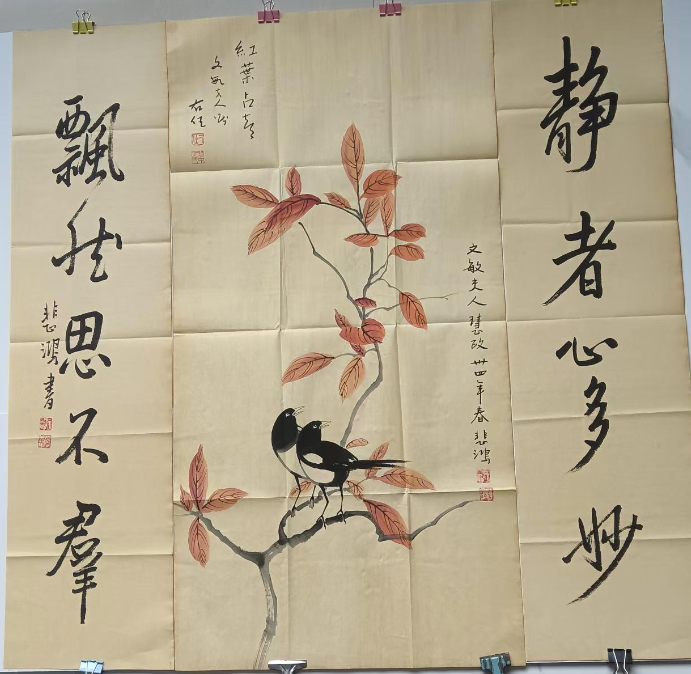 静者心多妙
文敏夫人慧政 卅四年春 悲鴻
紅葉占喜
文敏夫人
右任
飄然思不羣
悲鴻書